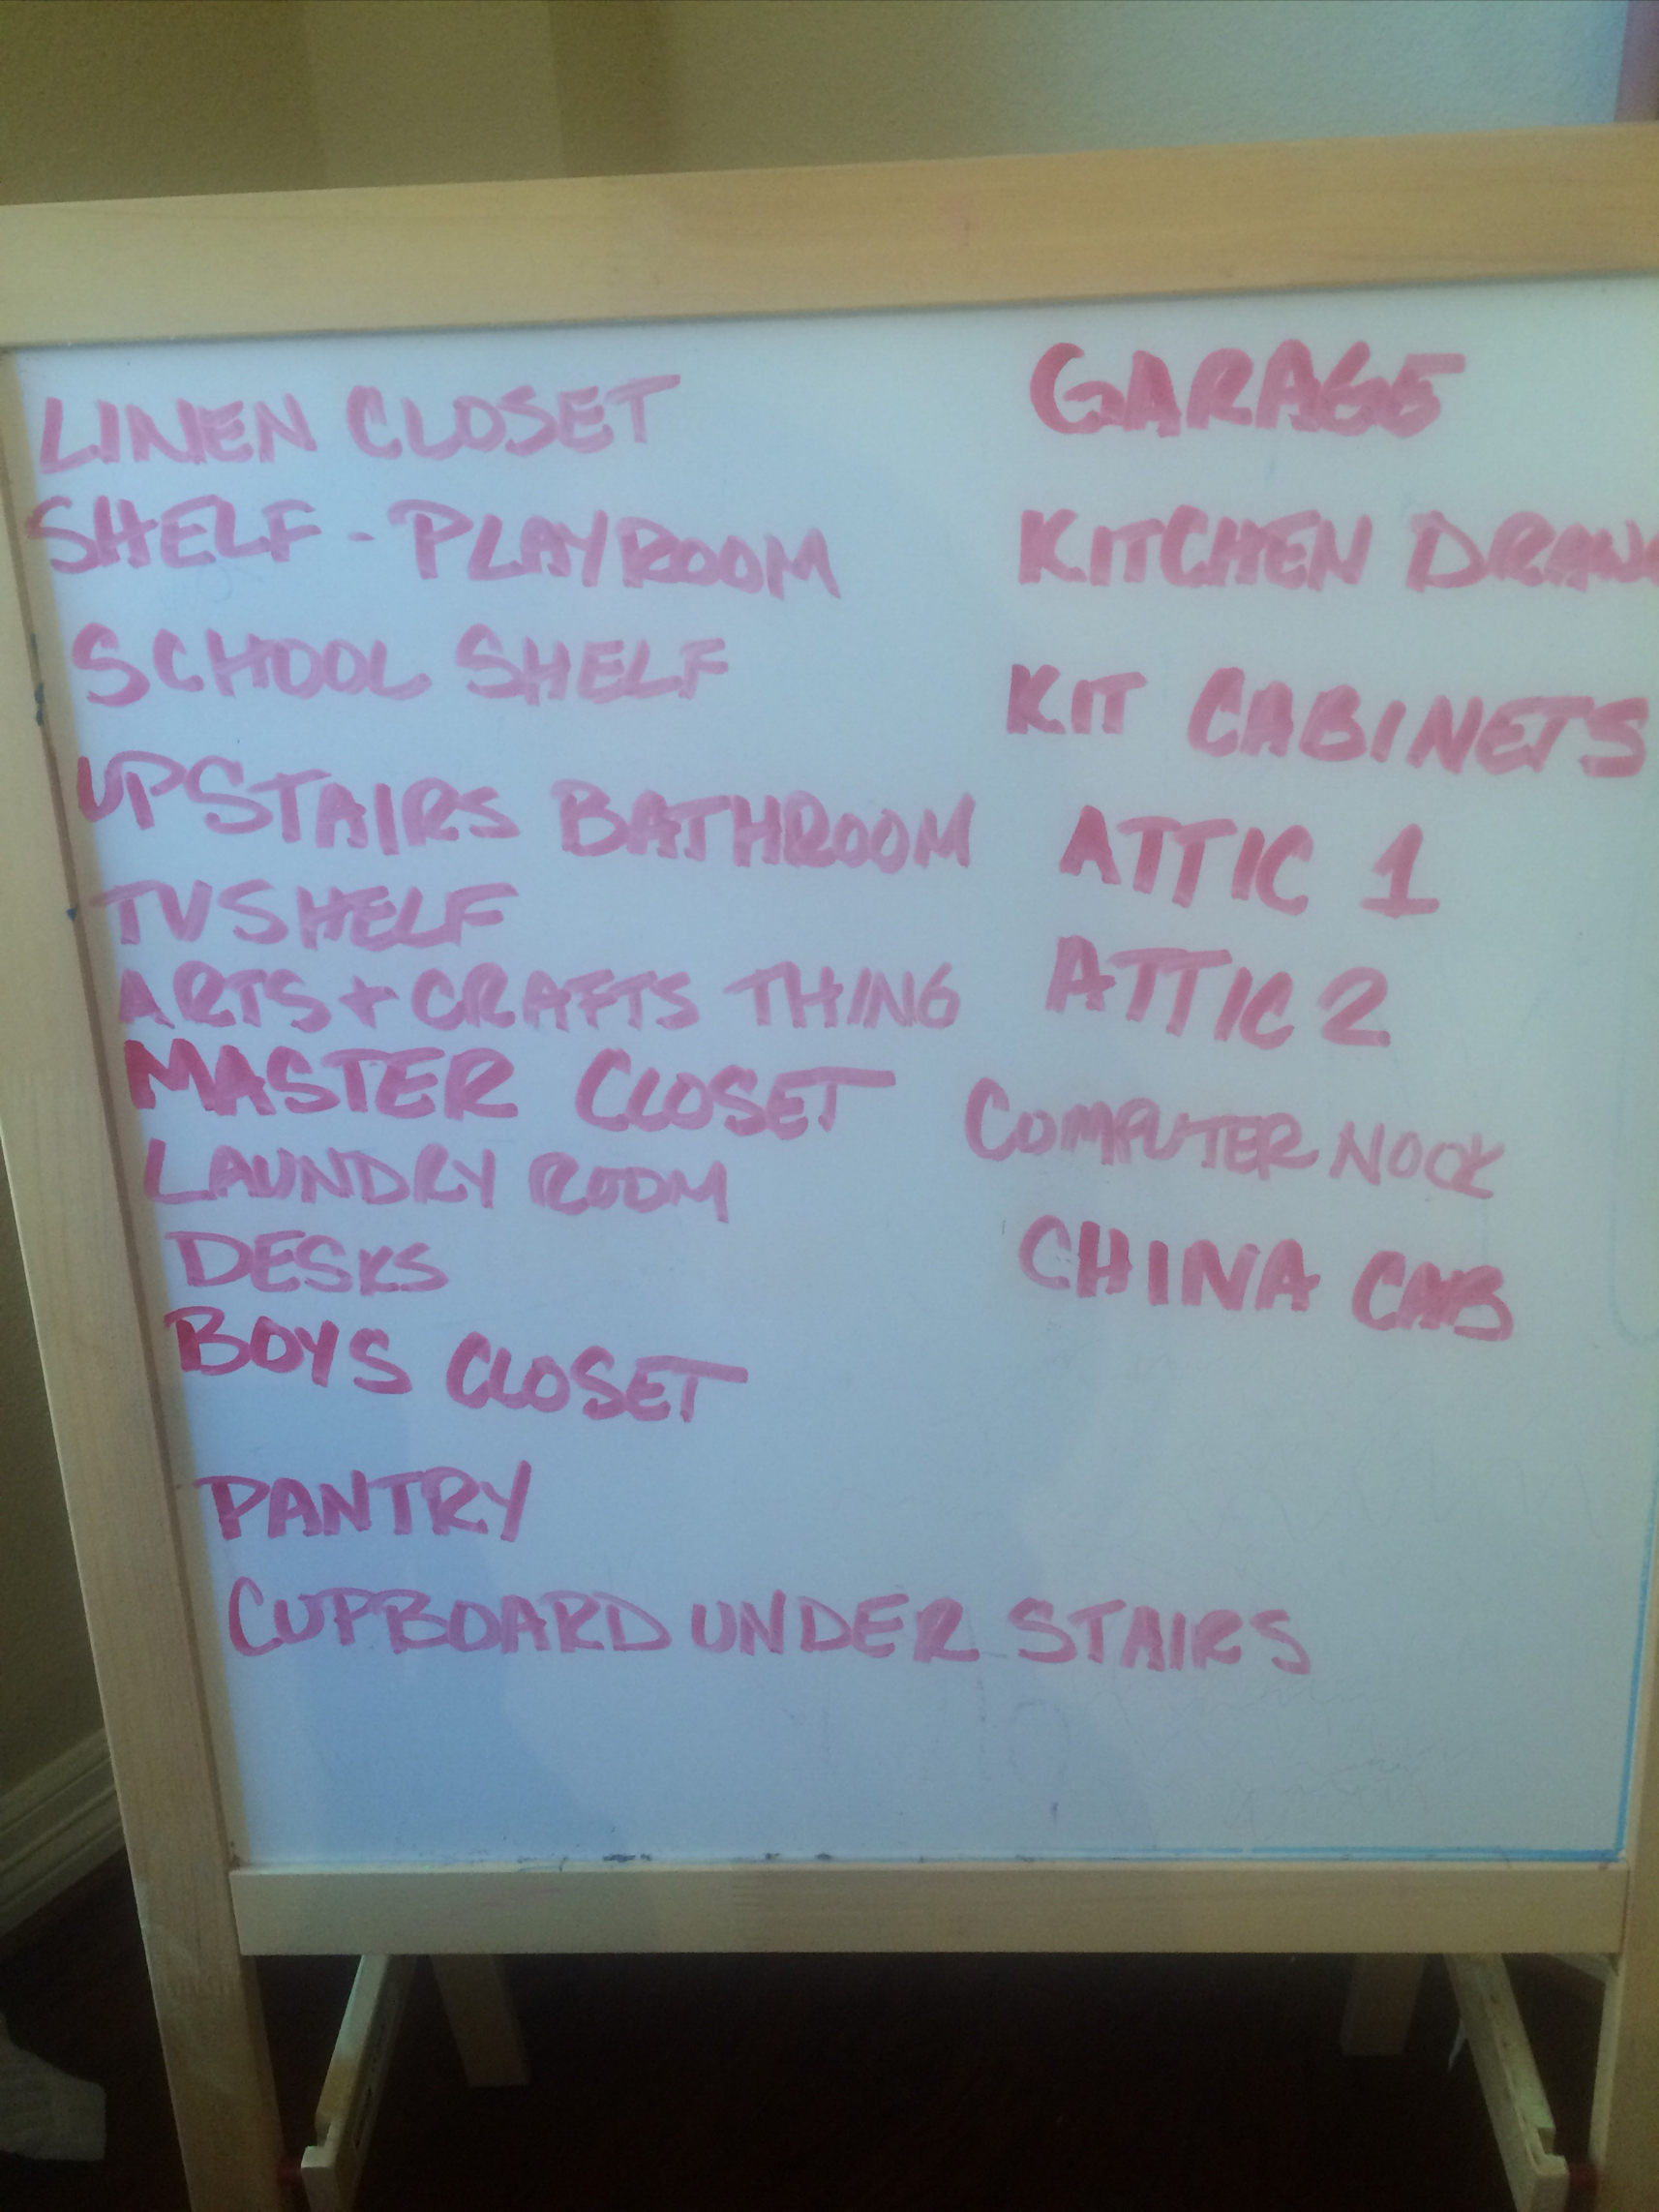 LINEN CLOSET
SHELF - PLAYROOM
SCHOOL SHELF
UPSTAIRS BATHROOM
TV SHELF
ARTS + CRAFTS THING
MASTER CLOSET
LAUNDRY ROOM
DESKS
BOYS CLOSET
PANTRY
CUPBOARD UNDER STAIRS
GARAGE
KITCHEN DRAW
KIT CABINETS
ATTIC 1
ATTIC 2
COMPUTER NOOK
CHINA CAB